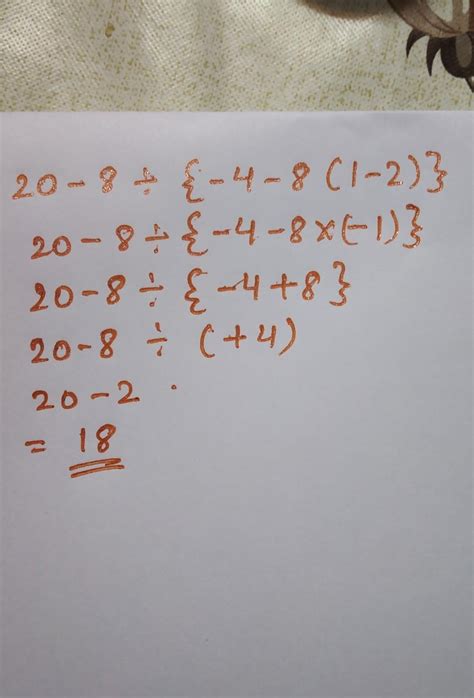 20 - 8 ÷ {-4 - 8 (1-2)}
20 - 8 ÷ {-4 - 8 × (-1)}
20 - 8 ÷ {-4 + 8}
20 - 8 ÷ (+4)
20 - 2
= 18